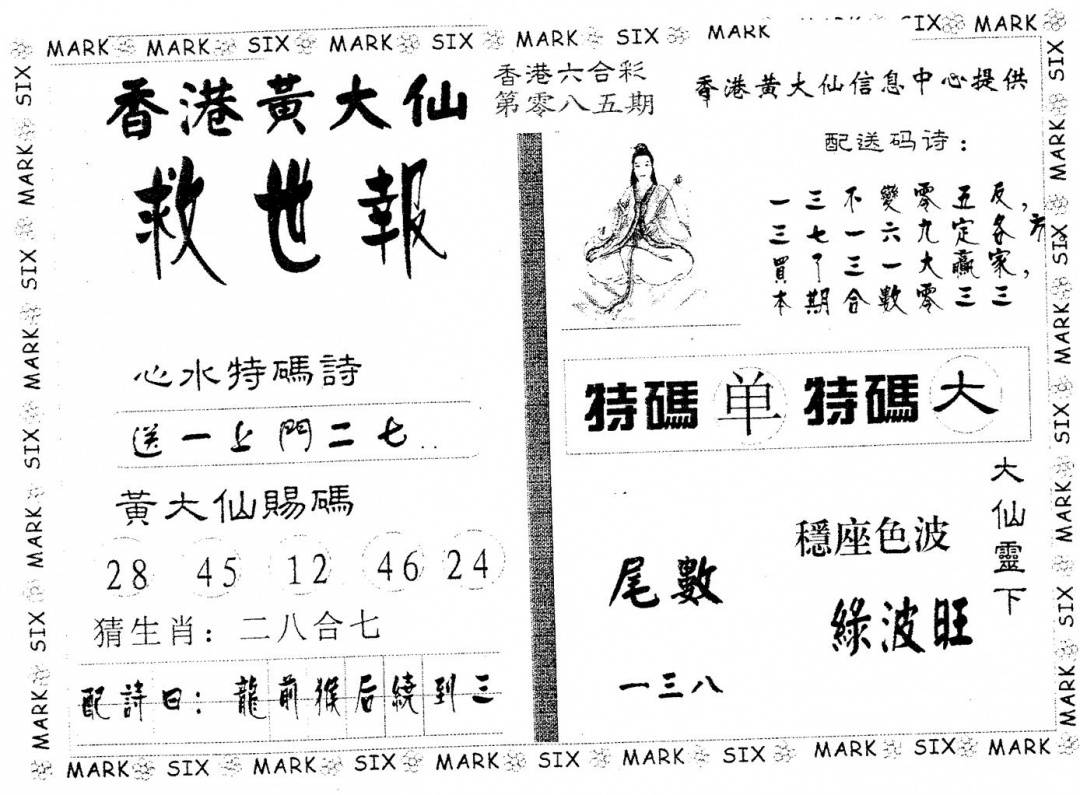 MARK SIX MARK SIX MARK SIX MARK SIX MARK
香港黃大仙
救世報
心水特碼詩
送一上門二七..
黃大仙賜碼
28 45 12 46 24
猜生肖：二八合七
配詩曰：龍前猴后繞到三
香港六合彩
第零八五期
香港黄大仙信息中心提供
配送码诗：
一三不變零五反，
三七一六九定各方
買了三一大贏家，
本期合數零三三
特碼 单 特碼 大
大仙靈下
穩座色波
綠波旺
尾數
一三八
MARK SIX MARK SIX MARK SIX MARK SIX MARK SIX MARK
SIX MARK SIX MARK SIX MARK SIX MARK
SIX MARK SIX MARK SIX MARK SIX MARK